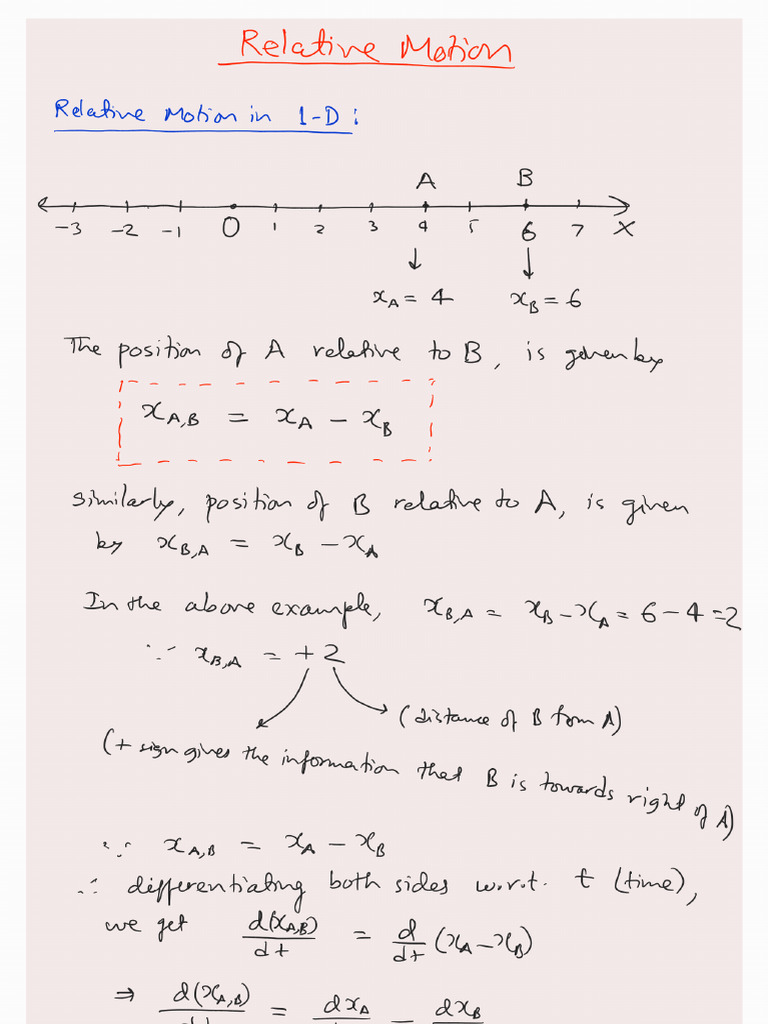 Relative Motion
Relative Motion in 1-D:
A B
-3 -2 -1 0 1 2 3 4 5 6 7 X
↓ ↓
x_A = 4 x_B = 6
The position of A relative to B, is given by
x_{A,B} = x_A - x_B
Similarly, position of B relative to A, is given
by x_{B,A} = x_B - x_A
In the above example, x_{B,A} = x_B - x_A = 6 - 4 = 2
∵ x_{B,A} = + 2
(distance of B from A)
(+ sign gives the information that B is towards right of A)
∵ x_{A,B} = x_A - x_B
∴ differentiating both sides w.r.t. t (time),
we get d(x_{A,B})/dt = d/dt (x_A - x_B)
⇒ d(x_{A,B})/dt = dx_A - dx_B